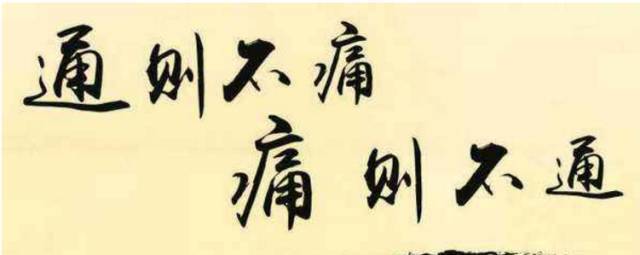 通则不痛
痛则不通